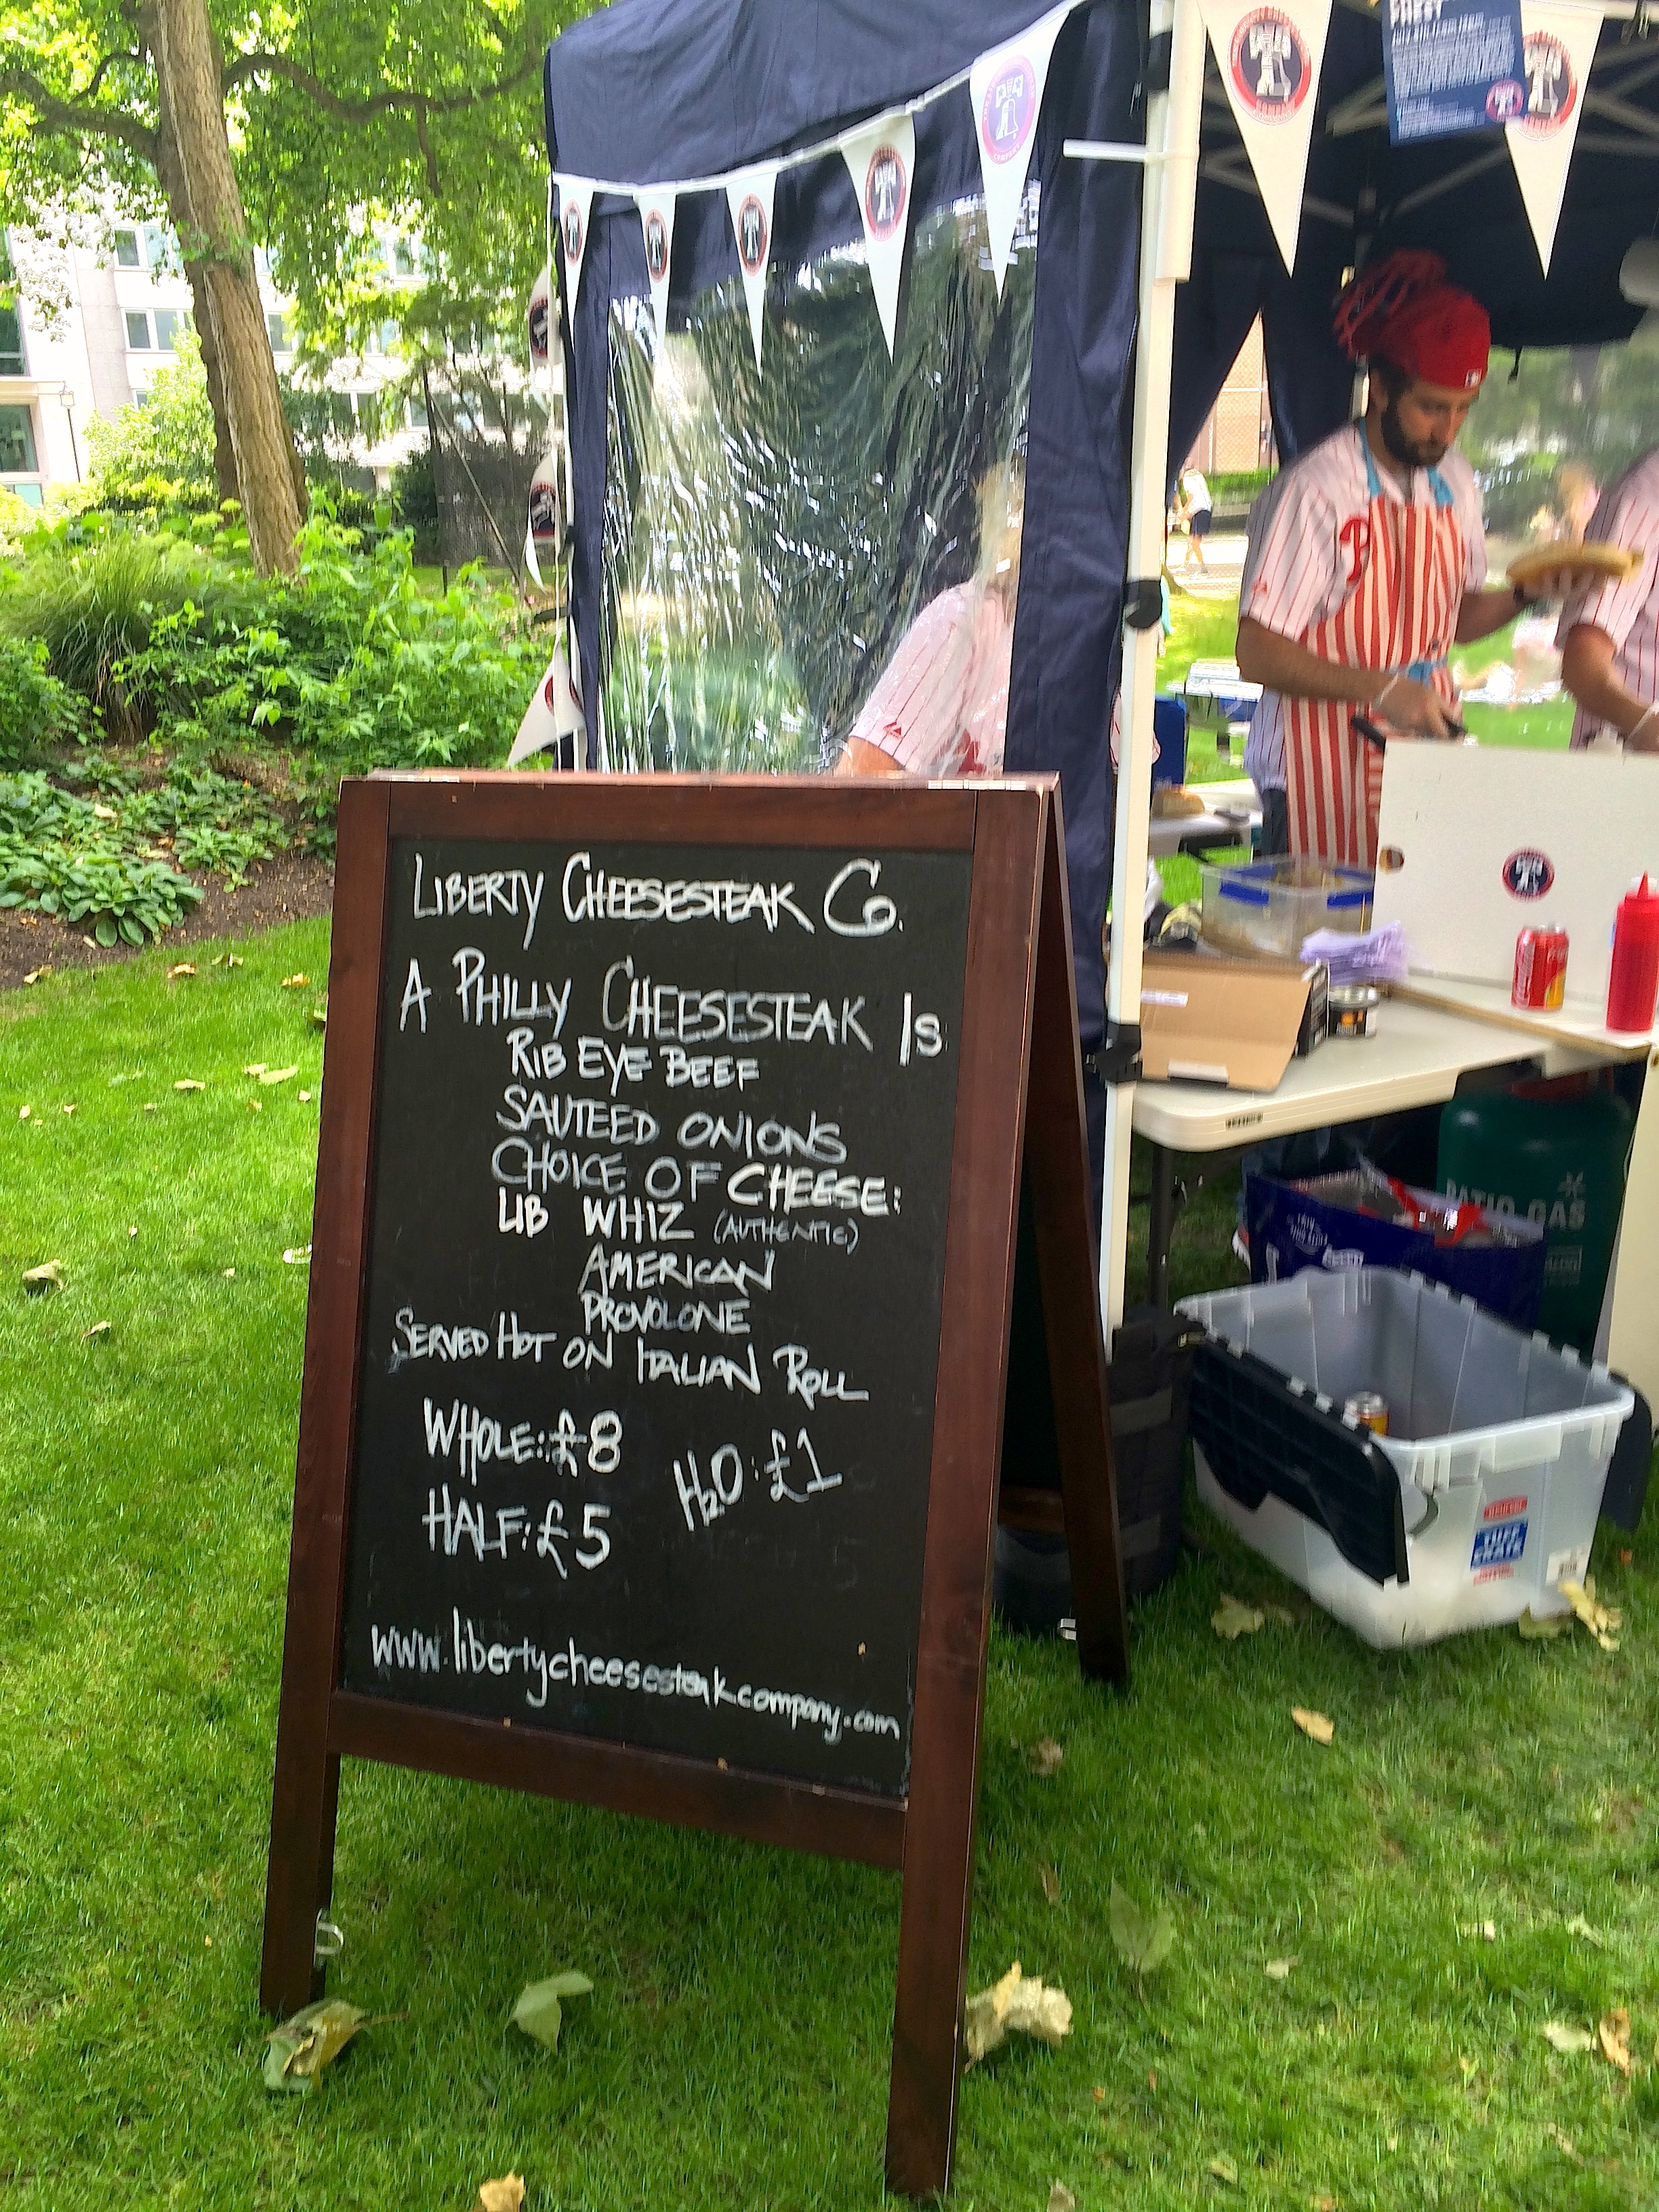 LIBERTY CHEESESTEAK Co.
A PHILLY CHEESESTEAK IS
RIB EYE BEEF
SAUTEED ONIONS
CHOICE OF CHEESE:
LIB WHIZ (AUTHENTIC)
AMERICAN
PROVOLONE
SERVED HOT ON ITALIAN ROLL
WHOLE: £8
H2O: £1
HALF: £5
www.libertycheesesteakcompany.com
P
PATIO GAS